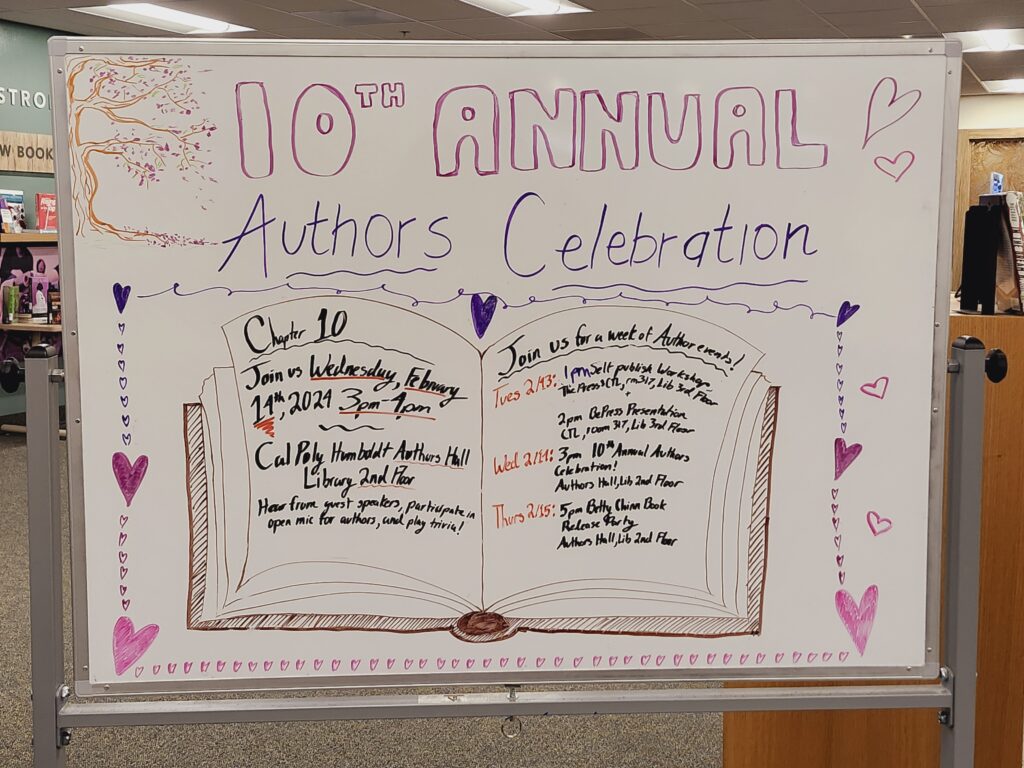 STRO
W BOOK
10TH ANNUAL
Authors Celebration
Chapter 10
Join us Wednesday, February
14th, 2024 3pm-4pm
Cal Poly Humboldt Authors Hall
Library 2nd Floor
Hear from guest speakers, participate in
open mic for authors, and play trivia!
Join us for a week of Author events!
Tues 2/13: 1pm Self publish Workshop
The Press CTL, rm 317, Lib 3rd Floor
+
2pm Presentation
CTL, room 317, Lib 3rd Floor
Wed 2/14: 3pm 10th Annual Authors
Celebration!
Authors Hall, Lib 2nd Floor
Thurs 2/15: 5pm Betty Chinn Book
Release Party
Authors Hall, Lib 2nd Floor